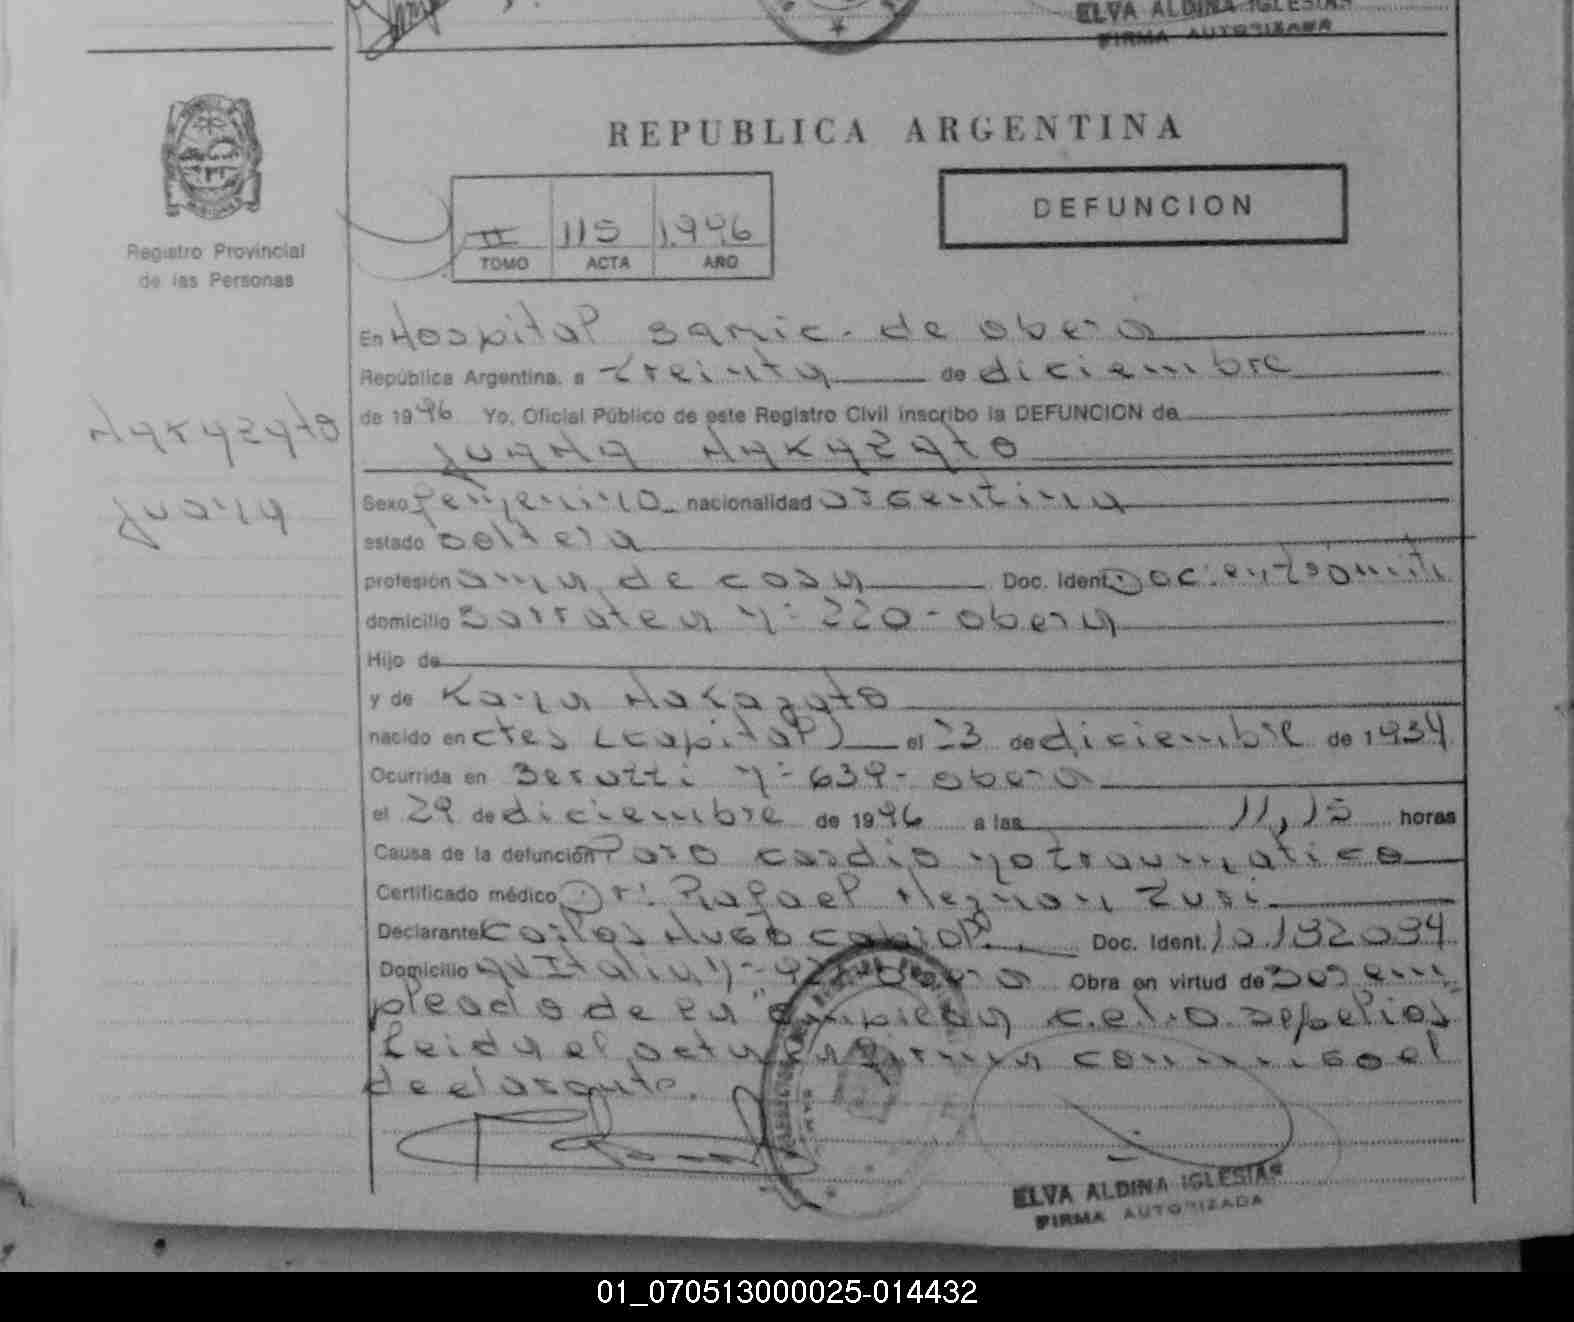 ELVA ALDINA IGLESIAS
FIRMA AUTORIZADA
REPUBLICA ARGENTINA
DEFUNCION
II 115 1.996
TOMO ACTA AÑO
Registro Provincial
de las Personas
Nakazato
Juana
En Hospital Samic - de obera
República Argentina, a treinta de diciembre
de 1996 Yo, Oficial Público de este Registro Civil inscribo la DEFUNCION de
Juana Nakazato
Sexo femenino nacionalidad argentina
estado soltera
profesión ama de casa Doc. Ident.
domicilio Sarratea n: 220 - obera
Hijo de
y de Kana Nakazato
nacido en ctes (capital) el 23 de diciembre de 1934
Ocurrida en Berutti n: 639 - obera
el 29 de diciembre de 1996 a las 11,15 horas
Causa de la defunción Paro cardio no traumatico
Certificado médico Dr: Rafael Zusi
Declarante Carlos Hugo Cabral Doc. Ident. 10.192094
Domicilio av Italia n: obera Obra en virtud de ser em
pleado de la c.e.l.o. sepelios
leida el acta firma conmigo el
declarante.
ELVA ALDINA IGLESIAS
FIRMA AUTORIZADA
01_070513000025-014432